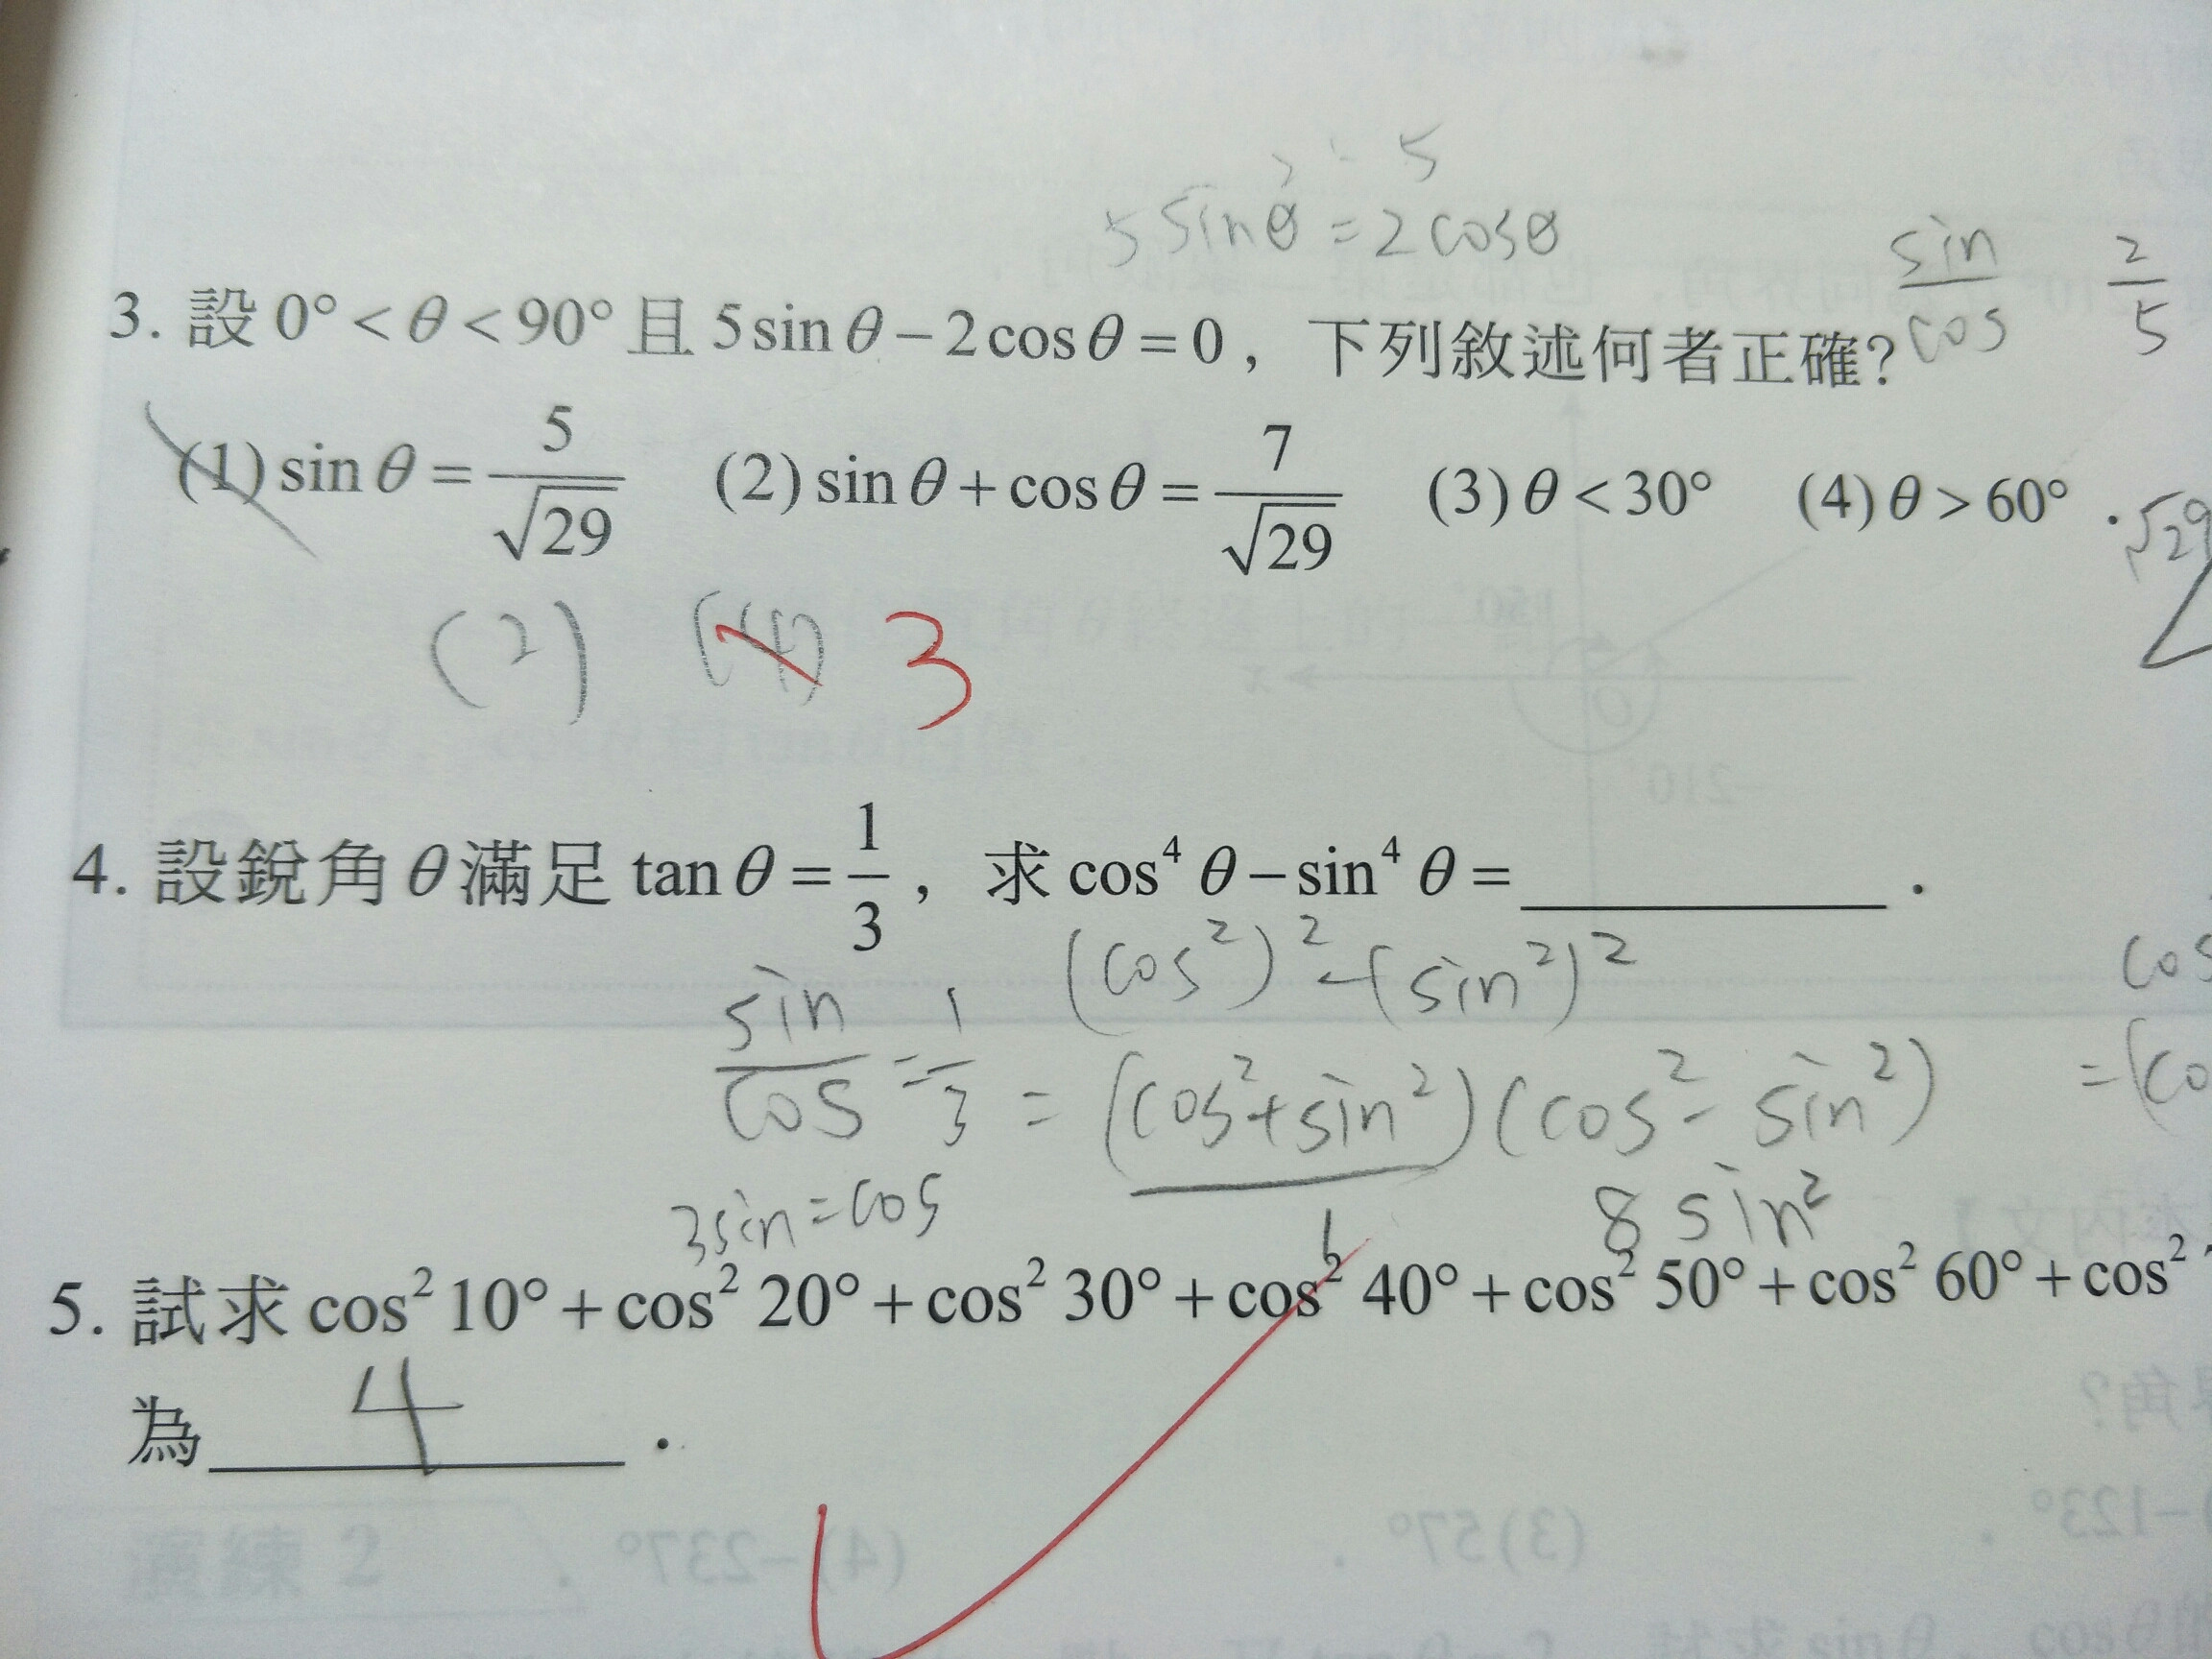 5 sinθ = 2 cosθ
sin/cos 2/5
3. 設 0° < θ < 90° 且 5 sin θ − 2 cos θ = 0，下列敘述何者正確?
(1) sin θ = 5/√29 (2) sin θ + cos θ = 7/√29 (3) θ < 30° (4) θ > 60° .
√29
(2) (4) 3
4. 設銳角 θ 滿足 tan θ = 1/3，求 cos⁴ θ − sin⁴ θ = ________ .
(cos²)² − (sin²)²
sin/cos = 1/3
= (cos² + sin²)(cos² − sin²)
3sin = cos
1
8 sin²
5. 試求 cos² 10° + cos² 20° + cos² 30° + cos² 40° + cos² 50° + cos² 60° + cos²
為 4 .